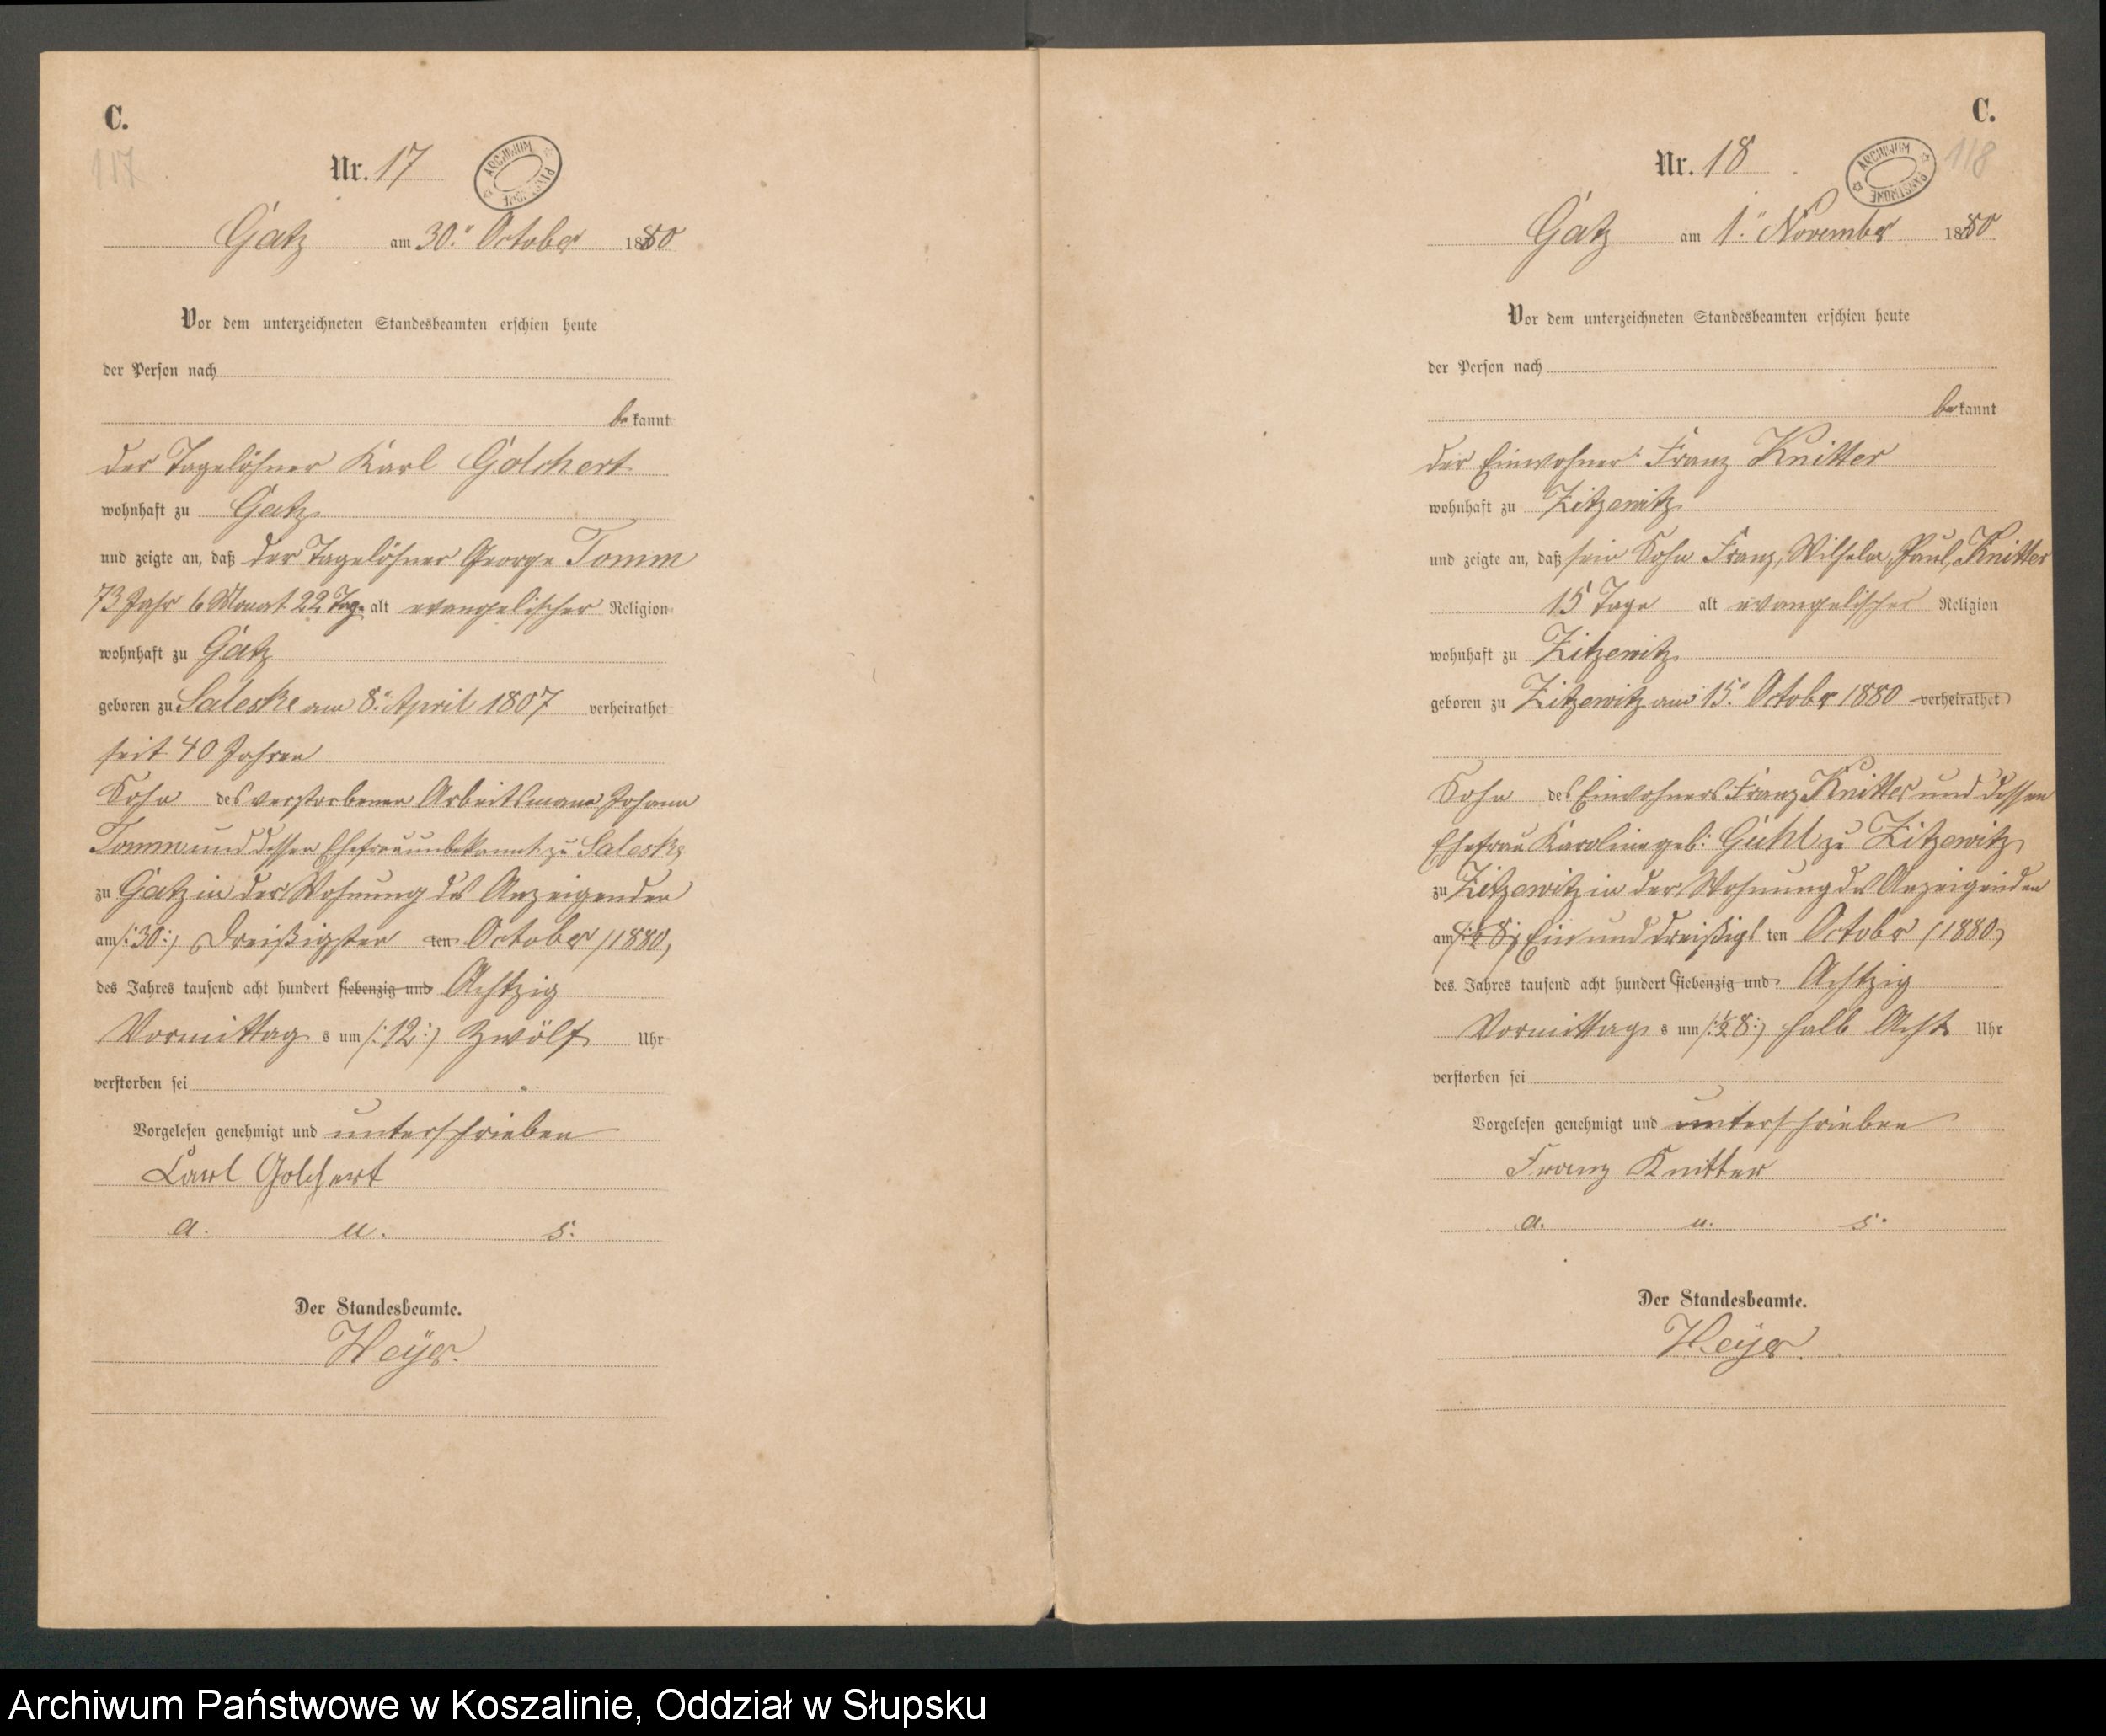 C.
117
Nr. 17
ARCHIWUM PAŃSTWOWE
Gatz am 30." October 1880
Vor dem unterzeichneten Standesbeamten erschien heute
der Person nach
bekannt
der Tagelöhner Karl Golchert
wohnhaft zu Gatz
und zeigte an, daß der Tagelöhner George Tomm
73 Jahr 6 Monat 22 Tage alt evangelischer Religion
wohnhaft zu Gatz
geboren zu Saleske am 8." April 1807 verheirathet
seit 40 Jahren
Sohn des verstorbenen Arbeitsmann Johann
Tomm und dessen Ehefrau unbekannt zu Saleske
zu Gatz in der Wohnung des Anzeigenden
am /:30:/ Dreißigsten ten October /1880/
des Jahres tausend acht hundert siebenzig und Achtzig
Vormittags um /:12:/ Zwölf Uhr
verstorben sei
Vorgelesen genehmigt und unterschrieben
Carl Golchert
a. u. s.
Der Standesbeamte.
Heyer.
C.
118
Nr. 18
ARCHIWUM PAŃSTWOWE
Gatz am 1." November 1880
Vor dem unterzeichneten Standesbeamten erschien heute
der Person nach
bekannt
der Einwohner Franz Knitter
wohnhaft zu Zitzewitz
und zeigte an, daß sein Sohn Franz, Wilhelm, Paul, Knitter
15 Tage alt evangelischer Religion
wohnhaft zu Zitzewitz
geboren zu Zitzewitz am 15." October 1880 verheirathet
Sohn des Einwohners Franz Knitter und dessen
Ehefrau Karoline geb: Guhl zu Zitzewitz
zu Zitzewitz in der Wohnung des Anzeigenden
am /:½8:/ Ein und dreißigs ten October /1880/
des Jahres tausend acht hundert siebenzig und Achtzig
Vormittags um /:½8:/ halb Acht Uhr
verstorben sei
Vorgelesen genehmigt und unterschrieben
Franz Knitter
a. u. s.
Der Standesbeamte.
Heyer.
Archiwum Państwowe w Koszalinie, Oddział w Słupsku